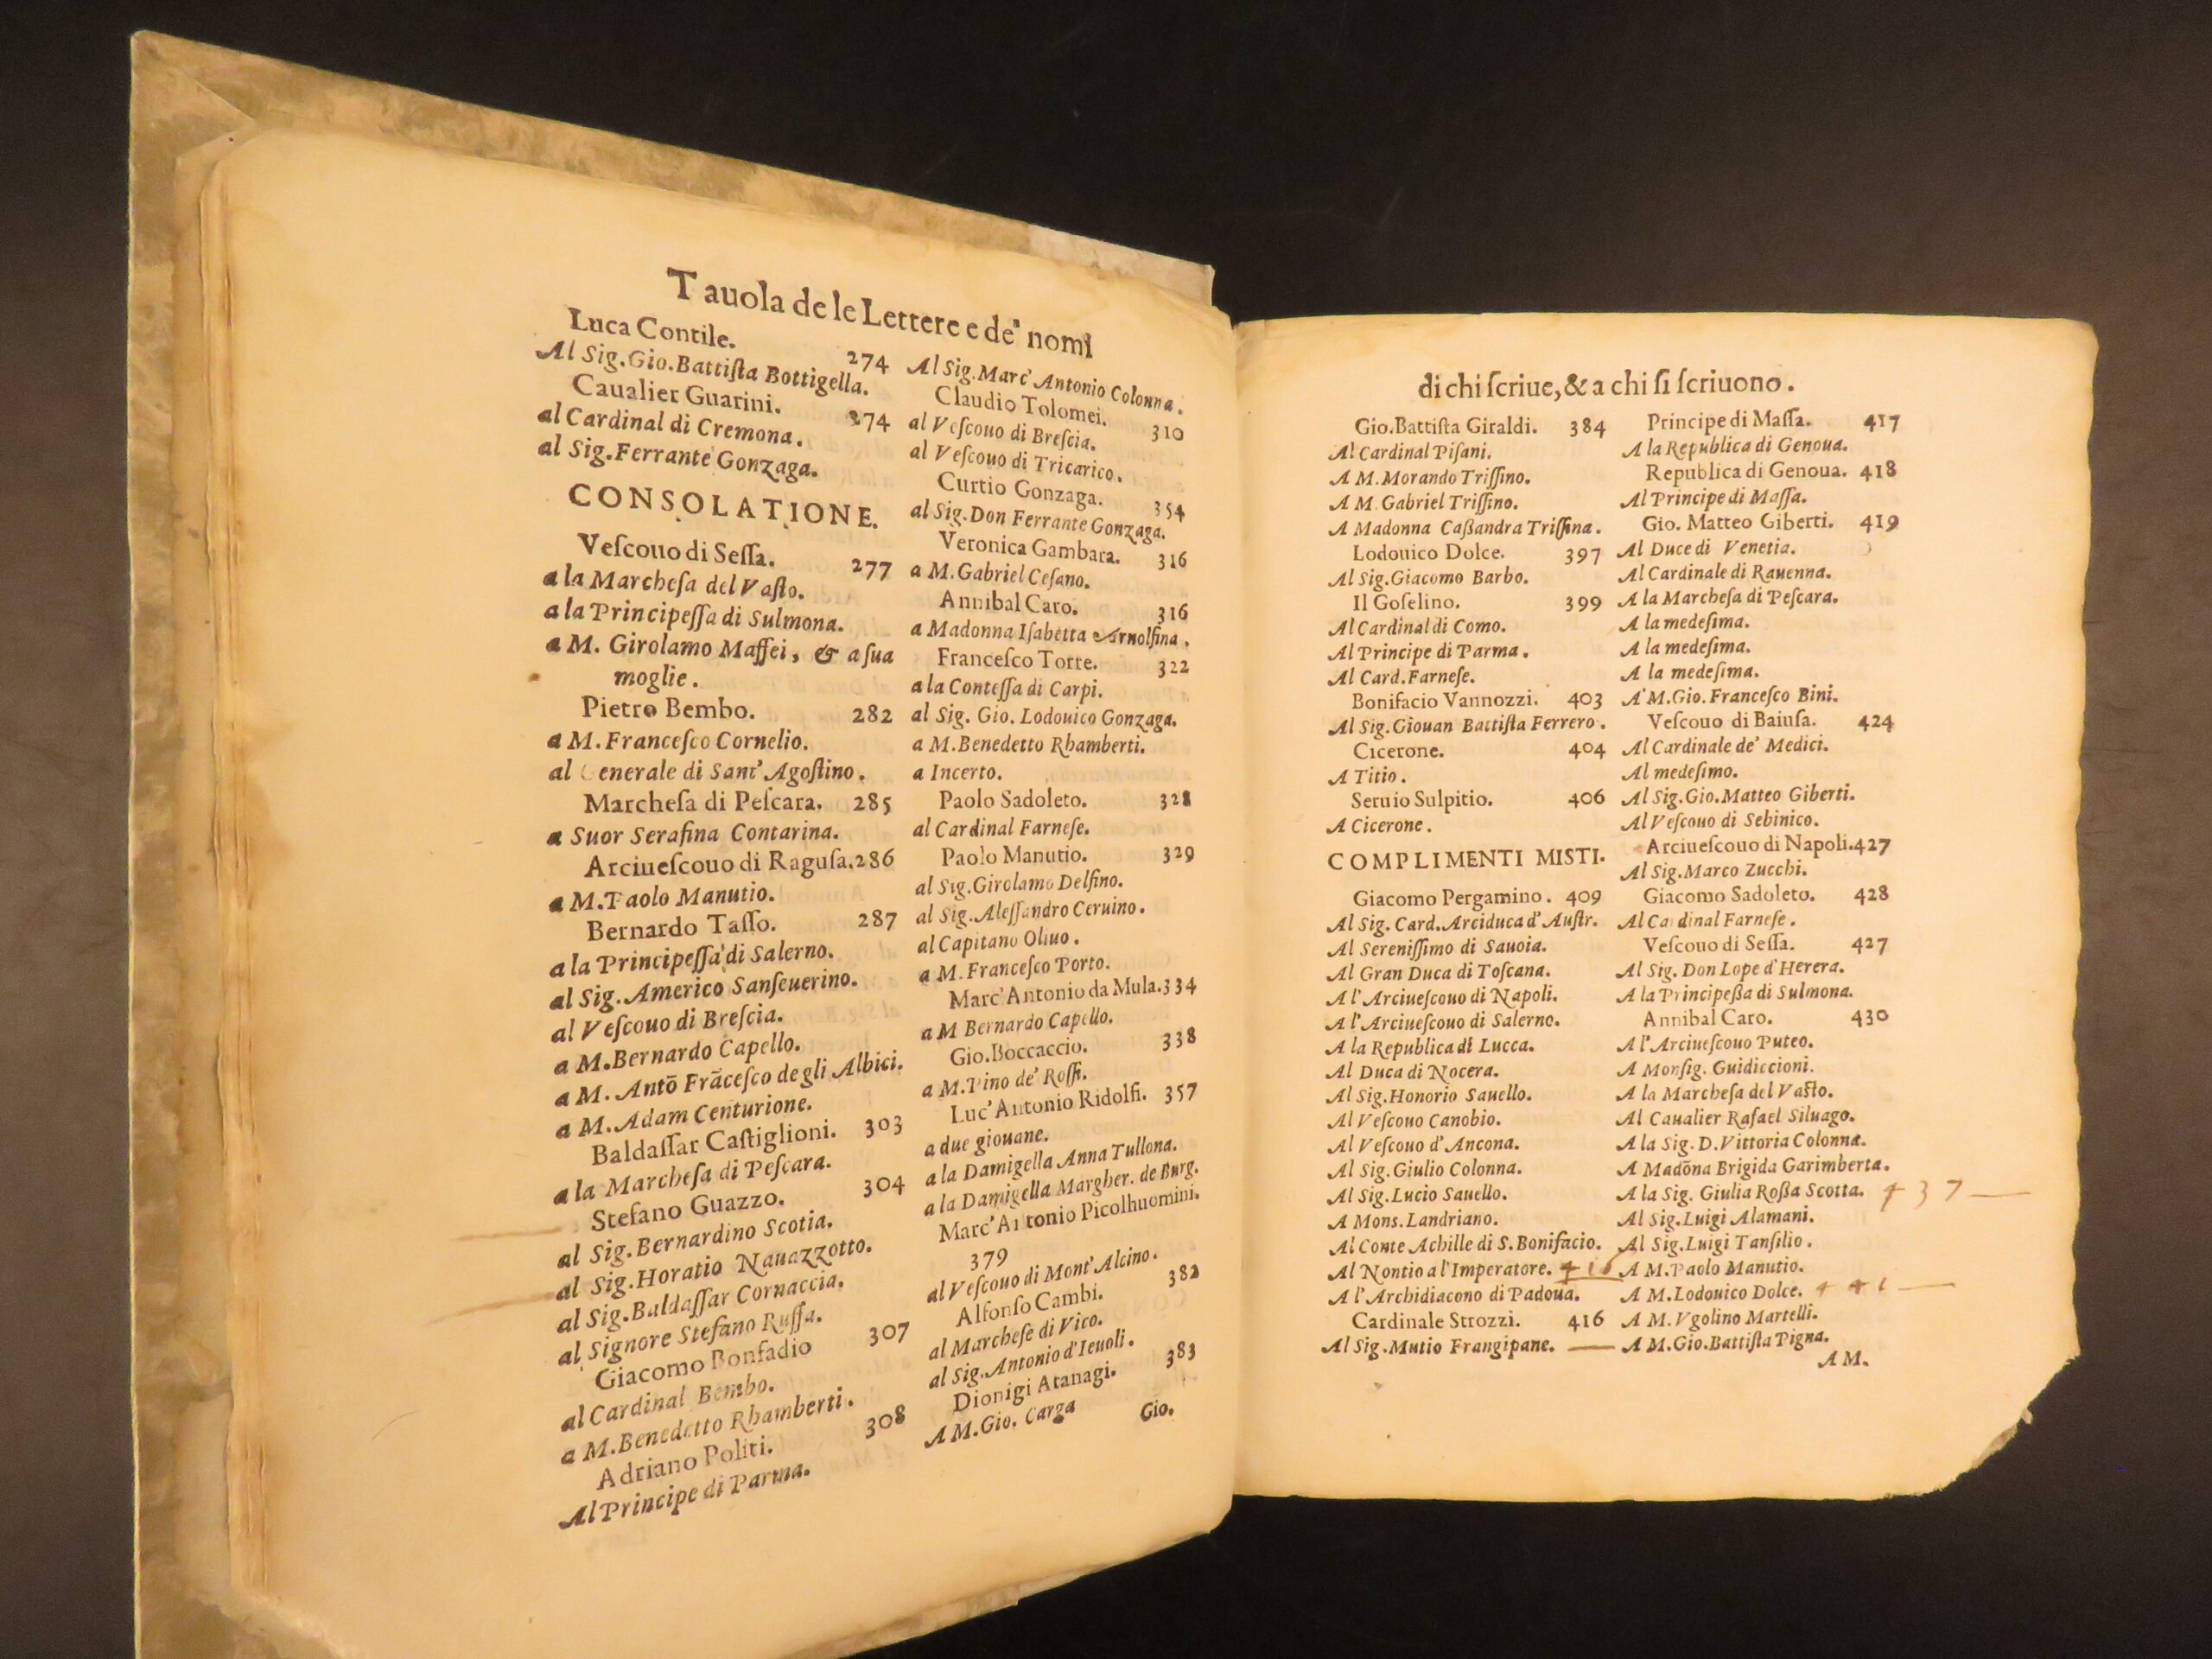 Tauola de le Lettere e de' nomi
Luca Contile. 274
Al Sig.Gio.Battiſta Bottigella.
Caualier Guarini. 274
al Cardinal di Cremona.
al Sig.Ferrante Gonzaga.
CONSOLATIONE.
Veſcouo di Seſſa. 277
a la Marcheſa del Vaſto.
a la Principeſſa di Sulmona.
a M. Girolamo Maffei, & a ſua
moglie.
Pietro Bembo. 282
a M.Franceſco Cornelio.
al Generale di Sant' Agoſtino.
Marcheſa di Peſcara. 285
a Suor Serafina Contarina.
Arciueſcouo di Raguſa. 286
a M.Paolo Manutio.
Bernardo Taſſo. 287
a la Principeſſa di Salerno.
al Sig. Americo Sanſeuerino.
al Veſcouo di Breſcia.
a M.Bernardo Capello.
a M. Antō Frāceſco degli Albici.
a M. Adam Centurione.
Baldaſſar Caſtiglioni. 303
a la Marcheſa di Peſcara.
Stefano Guazzo. 304
al Sig.Bernardino Scotia.
al Sig.Horatio Nauazzotto.
al Sig.Baldaſſar Cornaccia.
al Signore Stefano Ruffa.
Giacomo Bonfadio 307
al Cardinal Bembo.
a M.Benedetto Rhamberti.
Adriano Politi. 308
Al Principe di Parma.
Al Sig.Marc' Antonio Colonna.
Claudio Tolomei. 310
al Veſcouo di Breſcia.
al Veſcouo di Tricarico.
Curtio Gonzaga. 354
al Sig.Don Ferrante Gonzaga.
Veronica Gambara. 316
a M.Gabriel Ceſano.
Annibal Caro. 316
a Madonna Iſabetta Arnolfina.
Franceſco Torre. 322
a la Conteſſa di Carpi.
al Sig. Gio. Lodouico Gonzaga.
a M.Benedetto Rhamberti.
a Incerto.
Paolo Sadoleto. 328
al Cardinal Farneſe.
Paolo Manutio. 329
al Sig.Girolamo Delfino.
al Sig.Aleſſandro Ceruino.
al Capitano Oliuo.
a M.Franceſco Porto.
Marc'Antonio da Mula.334
a M Bernardo Capello.
Gio.Boccaccio. 338
a M.Pino de' Roſſi.
Luc'Antonio Ridolfi. 357
a due giouane.
a la Damigella Anna Tullona.
a la Damigella Margher. de Burg.
Marc'Antonio Picolhuomini.
379
al Veſcouo di Mont'Alcino.
Alfonſo Cambi. 382
al Marcheſe di Vico.
al Sig.Antonio d'Ieuoli.
Dionigi Atanagi. 383
A M.Gio. Carga
Gio.
di chi ſcriue, & a chi ſi ſcriuono.
Gio.Battiſta Giraldi. 384
Al Cardinal Piſani.
A M.Morando Triſſino.
A M.Gabriel Triſſino.
A Madonna Caßandra Triſſina.
Lodouico Dolce. 397
Al Sig.Giacomo Barbo.
Il Goſelino. 399
Al Cardinal di Como.
Al Principe di Parma.
Al Card.Farneſe.
Bonifacio Vannozzi. 403
Al Sig.Giouan Battiſta Ferrero.
Cicerone. 404
A Titio.
Seruio Sulpitio. 406
A Cicerone.
COMPLIMENTI MISTI.
Giacomo Pergamino. 409
Al Sig. Card.Arciduca d' Auſtr.
Al Sereniſſimo di Sauoia.
Al Gran Duca di Toſcana.
A l'Arciueſcouo di Napoli.
A l'Arciueſcouo di Salerno.
A la Republica di Lucca.
Al Duca di Nocera.
Al Sig.Honorio Sauello.
Al Veſcouo Canobio.
Al Veſcouo d' Ancona.
Al Sig.Giulio Colonna.
Al Sig.Lucio Sauello.
A Mons.Landriano.
Al Conte Achille di S.Bonifacio.
Al Nontio a l'Imperatore. 416
A l'Archidiacono di Padoua.
Cardinale Strozzi. 416
Al Sig.Mutio Frangipane.
Principe di Maſſa. 417
A la Republica di Genoua.
Republica di Genoua. 418
Al Principe di Maſſa.
Gio. Matteo Giberti. 419
Al Duce di Venetia.
Al Cardinale di Rauenna.
A la Marcheſa di Peſcara.
A la medeſima.
A la medeſima.
A la medeſima.
A M.Gio.Franceſco Bini.
Veſcouo di Baiuſa. 424
Al Cardinale de' Medici.
Al medeſimo.
Al Sig.Gio.Matteo Giberti.
Al Veſcouo di Sebinico.
Arciueſcouo di Napoli.427
Al Sig.Marco Zucchi.
Giacomo Sadoleto. 428
Al Cardinal Farneſe.
Veſcouo di Seſſa. 427
Al Sig. Don Lope d'Herera.
A la Principeßa di Sulmona.
Annibal Caro. 430
A l'Arciueſcouo Puteo.
A Monſig. Guidiccioni.
A la Marcheſa del Vaſto.
Al Caualier Rafael Siluago.
A la Sig.D.Vittoria Colonna.
A Madōna Brigida Garimberta.
A la Sig. Giulia Roßa Scotta. 437
Al Sig.Luigi Alamani.
Al Sig.Luigi Tanſilio.
A M.Paolo Manutio.
A M.Lodouico Dolce. 441
A M.Vgolino Martelli.
A M.Gio.Battiſta Pigna.
A M.